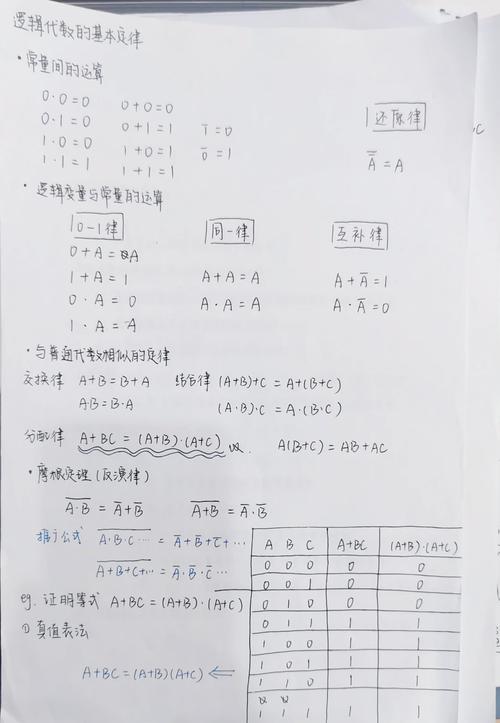 逻辑代数的基本定律
·常量间的运算
0·0=0 0+0=0
0·1=0 0+1=1 1̅=0
1·0=0 1+0=1 0̅=1
1·1=1 1+1=1
还原律
A̿=A
·逻辑变量与常量的运算
0-1律 同一律 互补律
0+A=A
1+A=1 A+A=A A+A̅=1
0·A=0 A·A=A A·A̅=0
1·A=A
·与普通代数相似的定律
交换律 A+B=B+A 结合律 (A+B)+C=A+(B+C)
AB=B·A (A·B)·C=A·(B·C)
分配律 A+BC=(A+B)·(A+C) A(B+C)=AB+AC
·摩根定理(反演律)
\overline{A·B}=A̅+B̅ \overline{A+B}=A̅·B̅
推广公式 \overline{A·B·C···}=A̅+B̅+C̅+···
\overline{A+B+C+···}=A̅·B̅·C̅···
eg. 证明等式 A+BC=(A+B)·(A+C)
①真值表法
A+BC=(A+B)(A+C) ⇐
A B C A+BC (A+B)·(A+C)
0 0 0 0 0
0 0 1 0 0
0 1 0 0 0
0 1 1 1 1
1 0 0 1 1
1 0 1 1 1
1 1 0 1 1
1 1 1 1 1